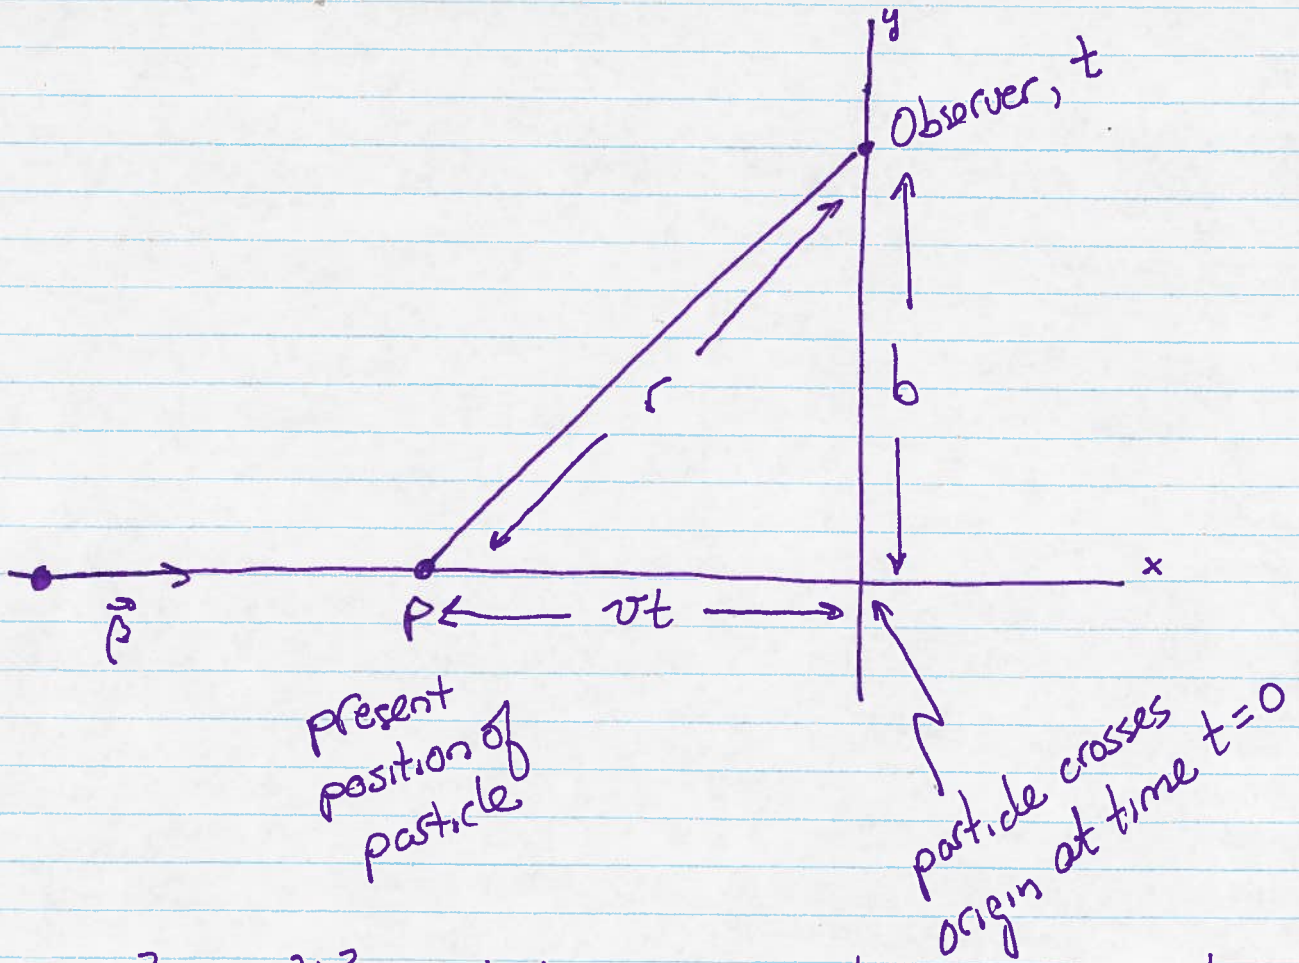 y
Observer, t
r
b
x
β⃗
P
vt
present
position of
particle
particle crosses
origin at time t=0